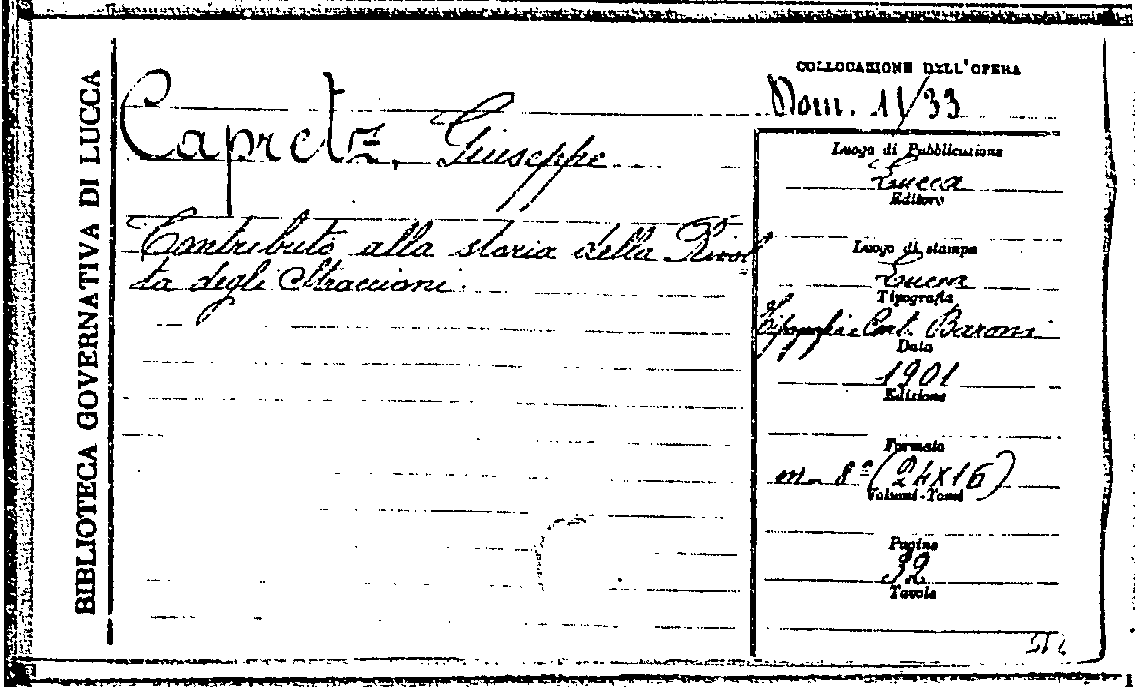 BIBLIOTECA GOVERNATIVA DI LUCCA
Capretz, Giuseppe
Contributo alla storia della Rivol
ta degli Straccioni.
COLLOCAZIONE DELL'OPERA
Mom. 11/33
Luogo di Pubblicazione
Lucca
Editore
Luogo di stampa
Lucca
Tipografia
Tipografia Baroni
Data
1901
Edizione
Formato
8º (24x16)
Volumi-Tomi
Pagine
32
Tavole